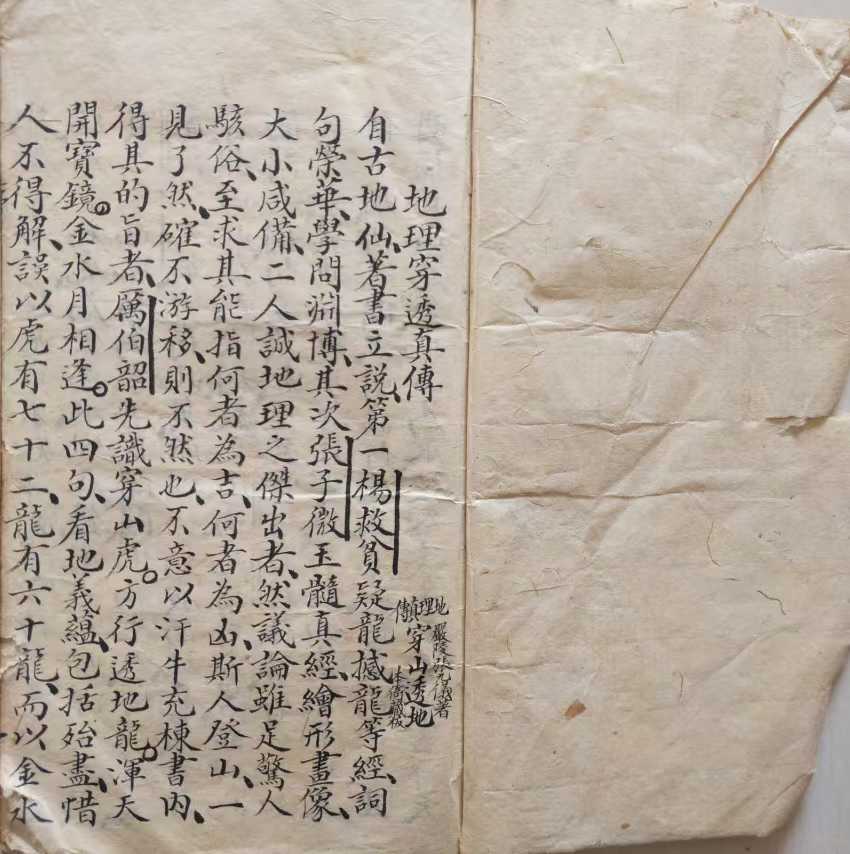 地理穿透真傳
地理真傳
穿山透地
嚴陵張九儀著
本衙藏板
自古地仙、著書立說、第一楊救貧疑龍撼龍等經、詞
句榮華、學問淵博、其次張子微玉髓真經、繪形畫像、
大小咸備、二人誠地理之傑出者、然議論雖足驚人
駭俗、至求其能指何者為吉、何者為凶、斯人登山、一
見了然、確不游移、則不然也、不意以汗牛充棟書內、
得其的旨者、厲伯韶先識穿山虎。方行透地龍。渾天
開寶鏡。金水月相逢。此四句、看地義蘊、包括殆盡、惜
人不得解、誤以虎有七十二、龍有六十龍、而以金水